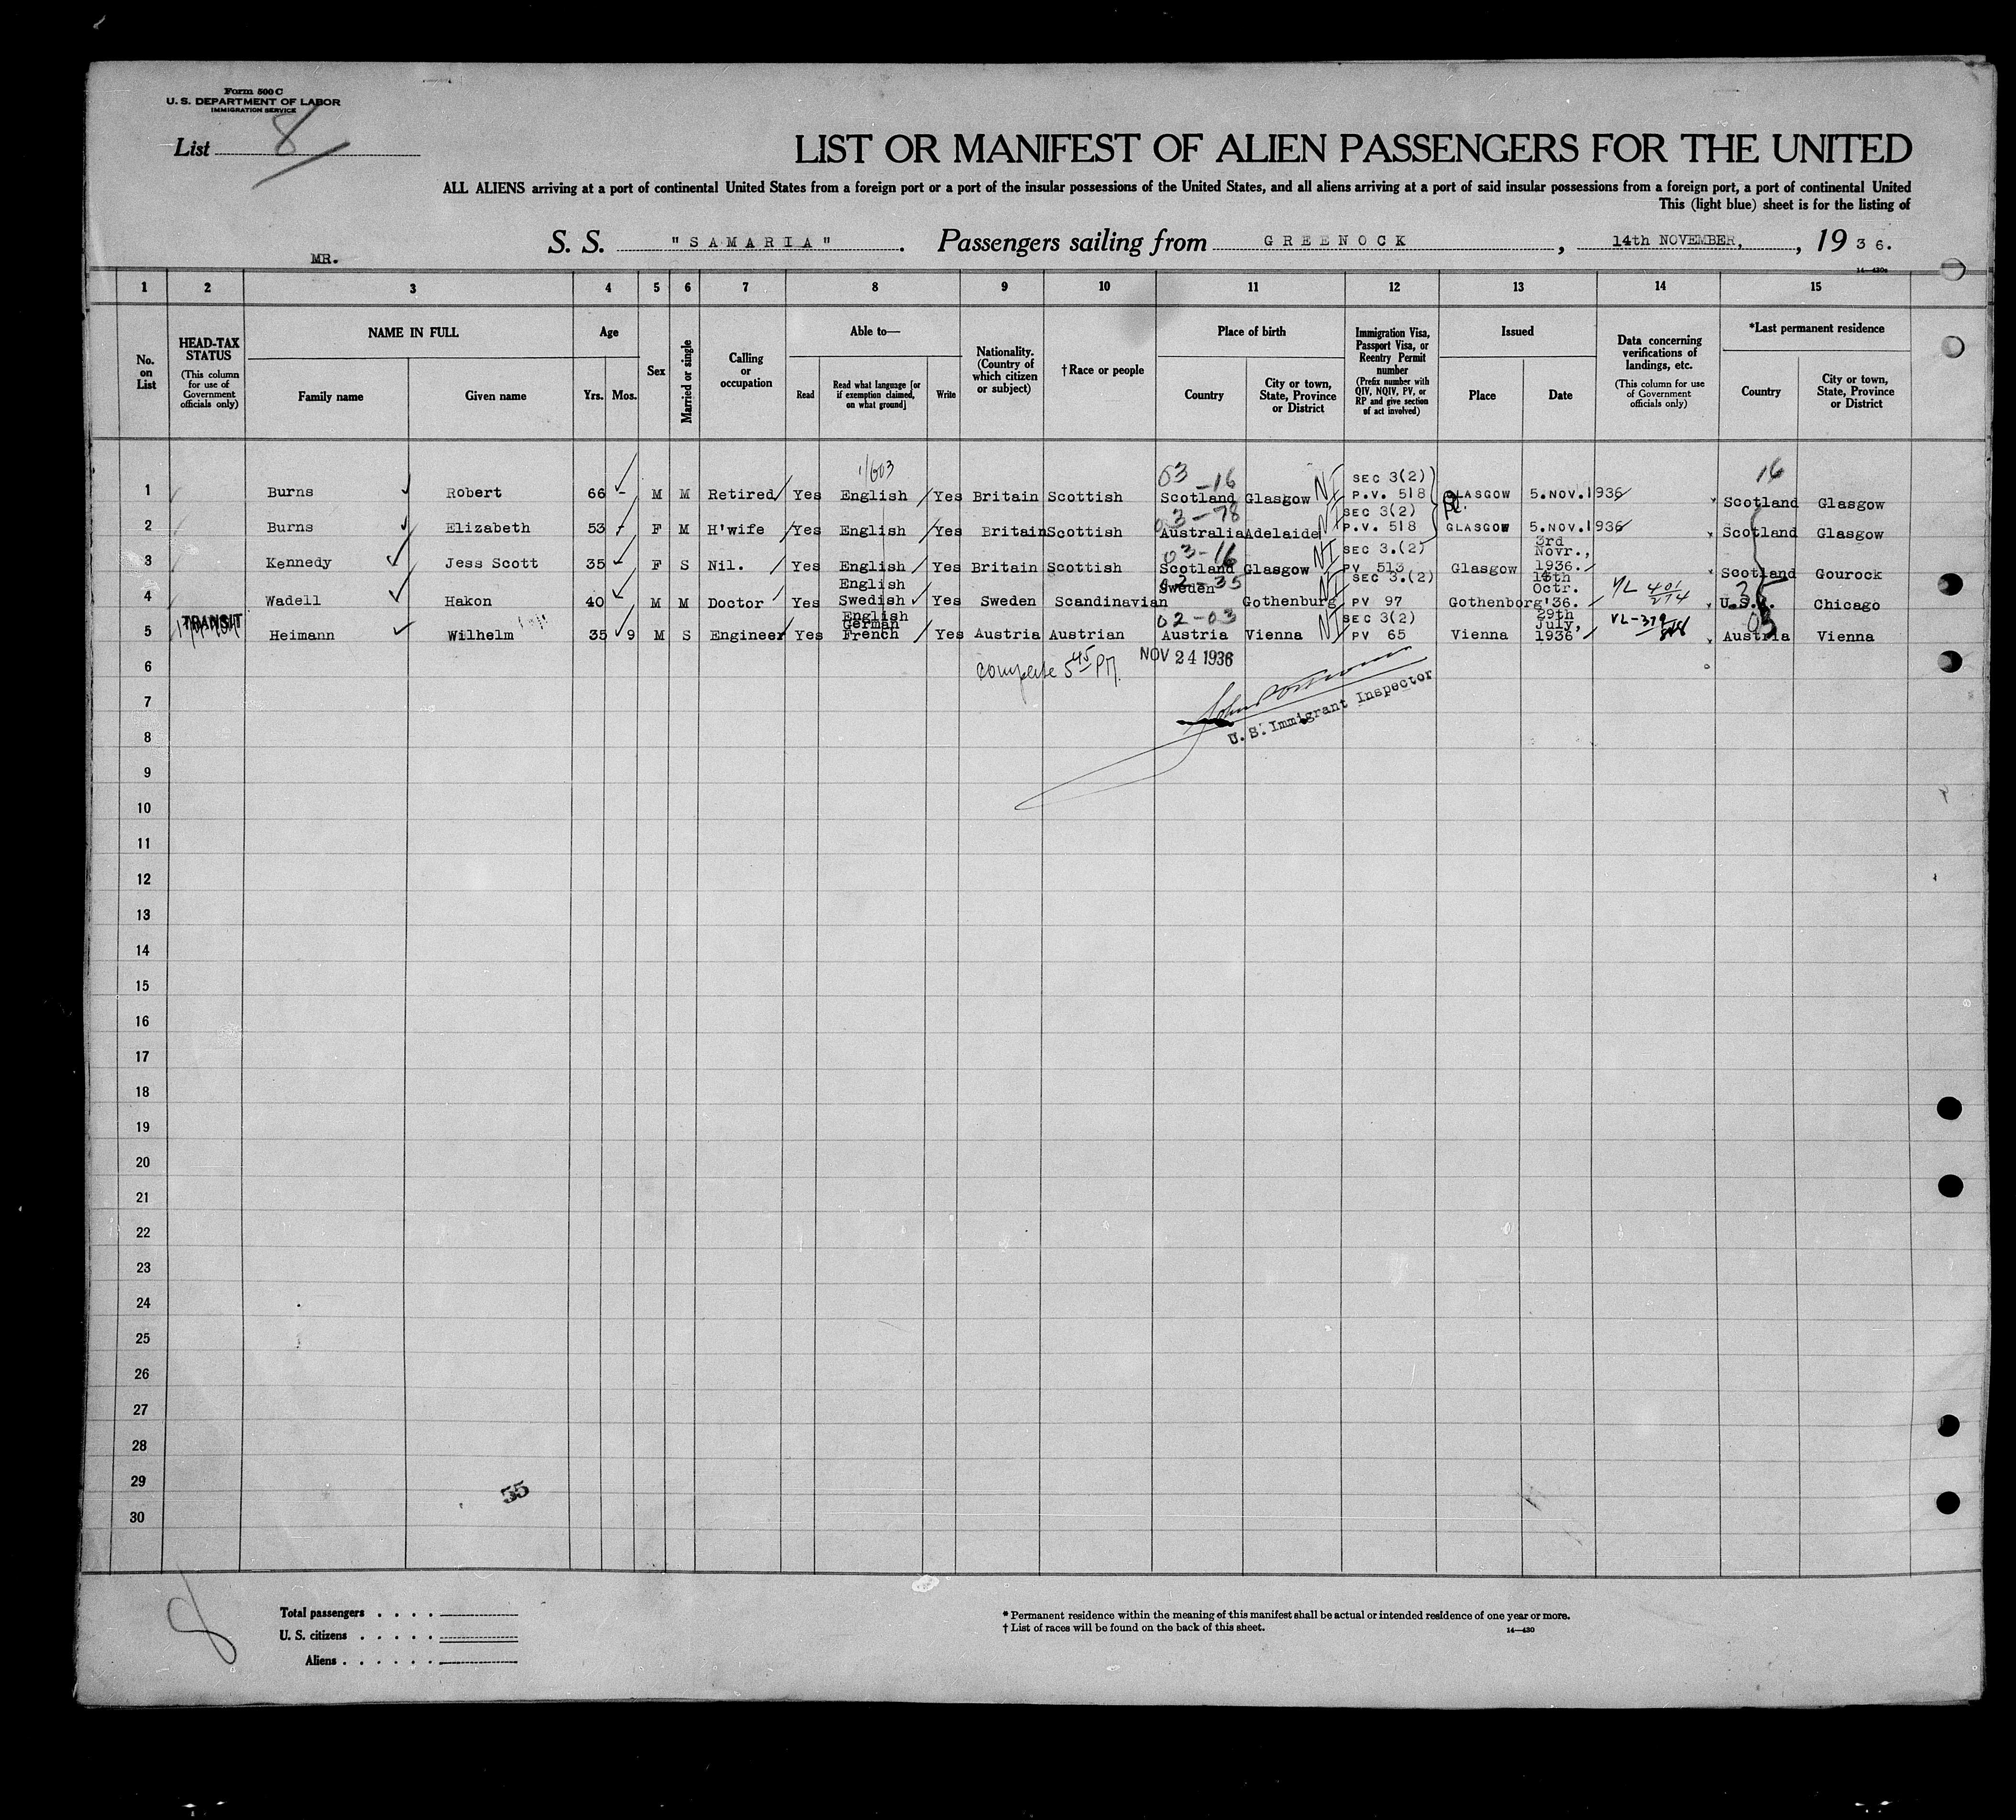 Form 500 C
U. S. DEPARTMENT OF LABOR
IMMIGRATION SERVICE
List 8
LIST OR MANIFEST OF ALIEN PASSENGERS FOR THE UNITED
ALL ALIENS arriving at a port of continental United States from a foreign port or a port of the insular possessions of the United States, and all aliens arriving at a port of said insular possessions from a foreign port, a port of continental United
This (light blue) sheet is for the listing of
S. S. "SAMARIA". Passengers sailing from GREENOCK, 14th NOVEMBER, , 1936.
MR.
14—430a
1 2 3 4 5 6 7 8 9 10 11 12 13 14 15
No. on List
HEAD-TAX STATUS
(This column for use of Government officials only)
NAME IN FULL
Family name Given name
Age
Yrs. Mos.
Sex
Married or single
Calling or occupation
Able to—
Read
Read what language [or if exemption claimed, on what ground]
Write
Nationality. (Country of which citizen or subject)
†Race or people
Place of birth
Country
City or town, State, Province or District
Immigration Visa, Passport Visa, or Reentry Permit number
(Prefix number with QIV, NQIV, PV, or RP and give section of act involved)
Issued
Place Date
Data concerning verifications of landings, etc.
(This column for use of Government officials only)
*Last permanent residence
Country
City or town, State, Province or District
1/603 03-16 SEC 3(2) 16
1 Burns Robert 66 - M M Retired Yes English Yes Britain Scottish Scotland Glasgow NI P.V. 518 GLASGOW 5.NOV.1936 Scotland Glasgow
03-78 SEC 3(2)
2 Burns Elizabeth 53 - F M H'wife Yes English Yes Britain Scottish Australia Adelaide NI P.V. 518 GLASGOW 5.NOV.1936 Scotland Glasgow
03-16 SEC 3.(2) 3rd Novr.,
3 Kennedy Jess Scott 35 F S Nil. Yes English Yes Britain Scottish Scotland Glasgow NI PV 513 Glasgow 1936. Scotland Gourock
English 02-35 Sweden SEC 3.(2) Octr. 35
4 Wadell Hakon 40 M M Doctor Yes Swedish Yes Sweden Scandinavian Gothenburg NI PV 97 Gothenborg '36. VL 401/274 U.S.A. Chicago
TRANSIT English German 02-03 SEC 3(2) 29th July, 03
5 Heimann Wilhelm 35 9 M S Engineer Yes French Yes Austria Austrian Austria Vienna NI PV 65 Vienna 1936 VL-379 Austria Vienna
6 complete 5 45 PM. NOV 24 1936
7
U. S. Immigrant Inspector
8
9
10
11
12
13
14
15
16
17
18
19
20
21
22
23
24
25
26
27
28
29
55
30
8
Total passengers . . . .
U. S. citizens . . . . .
Aliens . . . . . .
* Permanent residence within the meaning of this manifest shall be actual or intended residence of one year or more.
† List of races will be found on the back of this sheet.
14—430